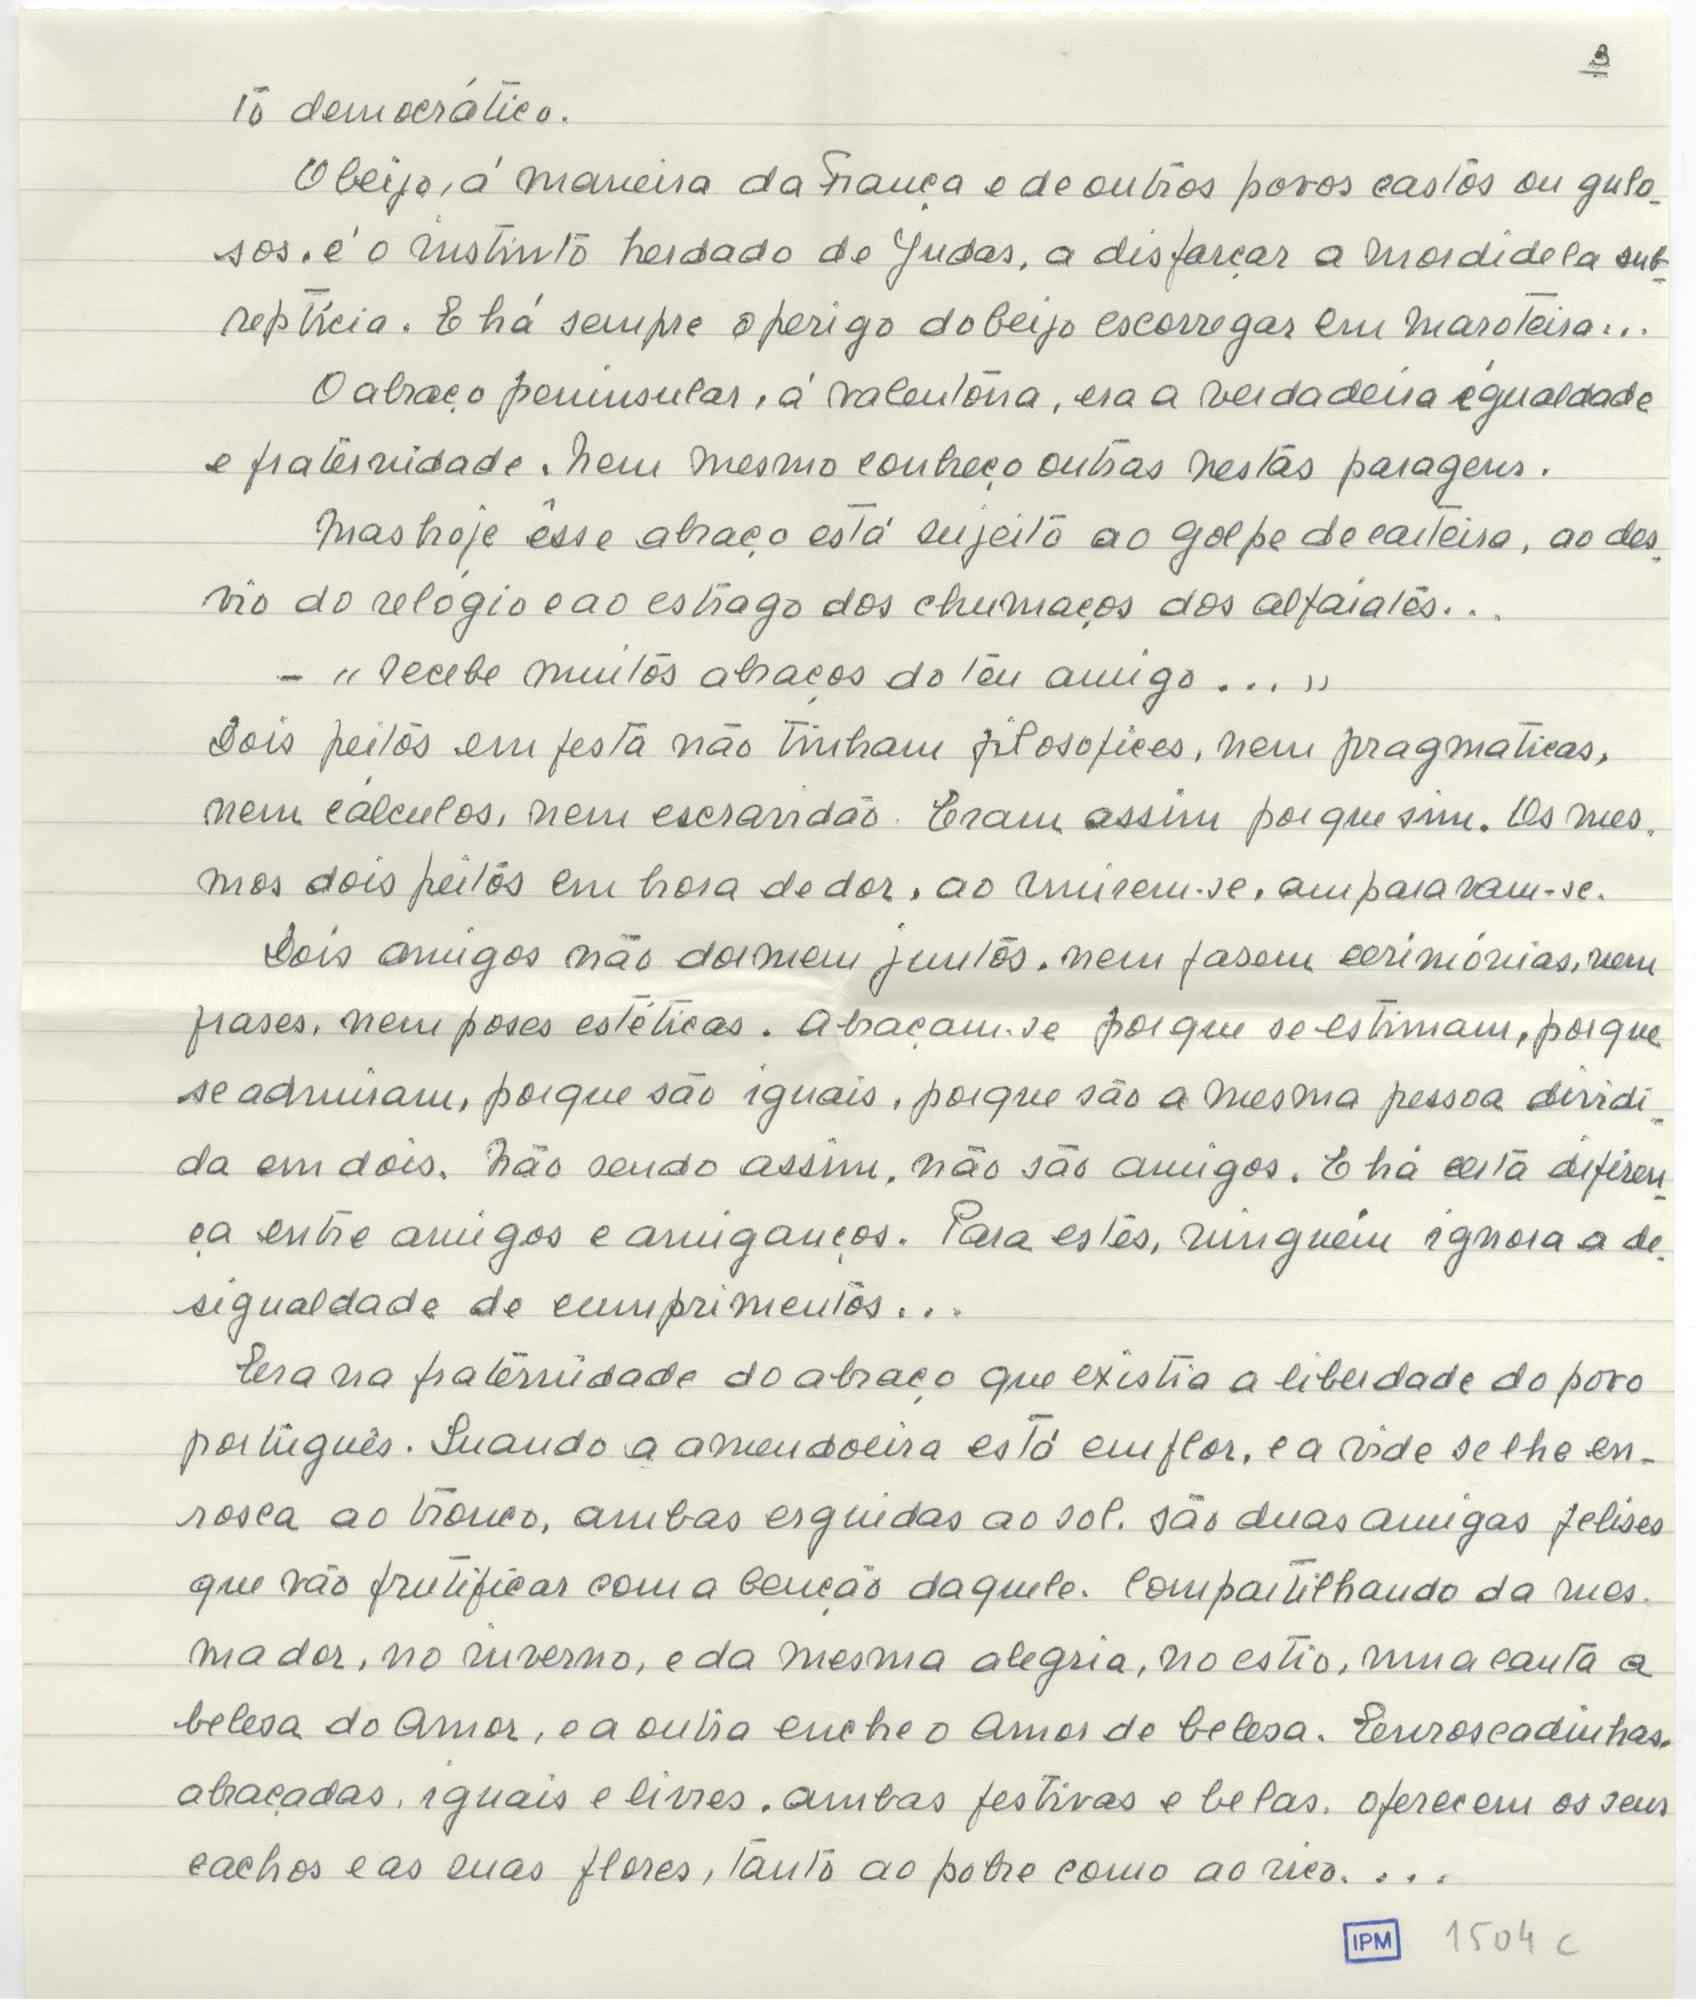 3
tò democrático.
O beijo, á maneira da França e de outros povos castos ou gulo-
sos, é o instinto herdado de Judas, a disfarçar a mordidela sub-
reptícia. E há sempre o perigo do beijo escorregar em maroteira...
O abraço peninsular, á valentona, era a verdadeira egualdade
e fraternidade. Nem mesmo conheço outras nestas paragens.
Mas hoje êsse abraço está sujeito ao golpe de carteira, ao des-
vio do relógio e ao estrago dos chumaços dos alfaiates...
- "recebe muitos abraços do teu amigo..."
Dois peitos em festa não tinham filosofices, nem pragmaticas,
nem cálculos, nem escravidão. Eram assim porque sim. Os mes-
mos dois peitos em hora de dor, ao unirem-se, amparavam-se.
Dois amigos não dormem juntos, nem fasem cerimónias, nem
frases, nem poses estéticas. Abraçam-se porque se estimam, porque
se admiram, porque são iguais, porque são a mesma pessoa dividi-
da em dois. Não sendo assim, não são amigos. E há certa diferen-
ça entre amigos e amigançes. Para estes, ninguém ignora a de-
sigualdade de cumprimentos...
Era na fraternidade do abraço que existia a liberdade do povo
português. Quando a amendoeira está em flor, e a vide se lhe en-
rosca ao tronco, ambas erguidas ao sol, são duas amigas felises
que vão frutificar com a benção daquele. Compartilhando da mes-
ma dor, no inverno, e da mesma alegria, no estio, uma canta a
belesa do Amor, e a outra enche o Amor de belesa. Enroscadinhas,
abraçadas, iguais e livres, ambas festivas e belas, oferecem os seus
cachos e as suas flores, tanto ao pobre como ao rico....
IPM 1504 c